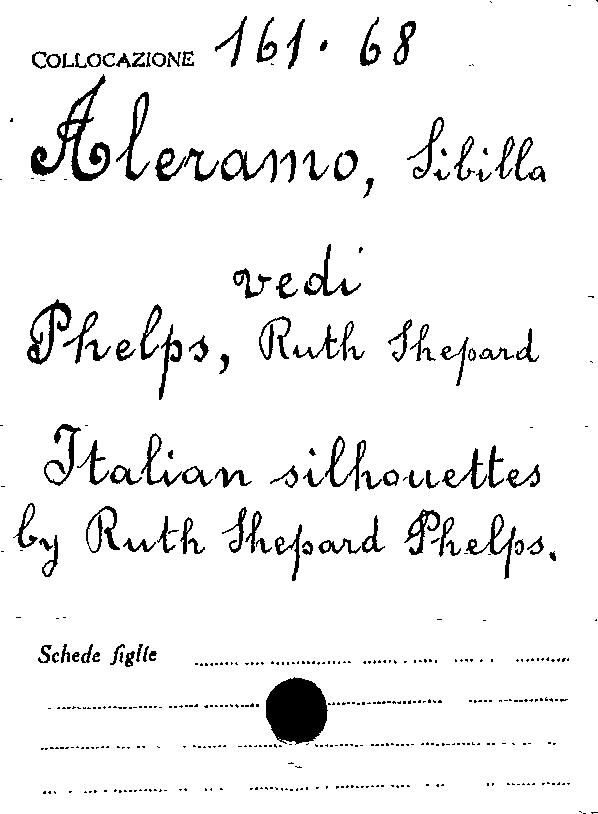 COLLOCAZIONE 161. 68
Aleramo, Sibilla
vedi
Phelps, Ruth Shepard
Italian silhouettes
by Ruth Shepard Phelps.
Schede figlie